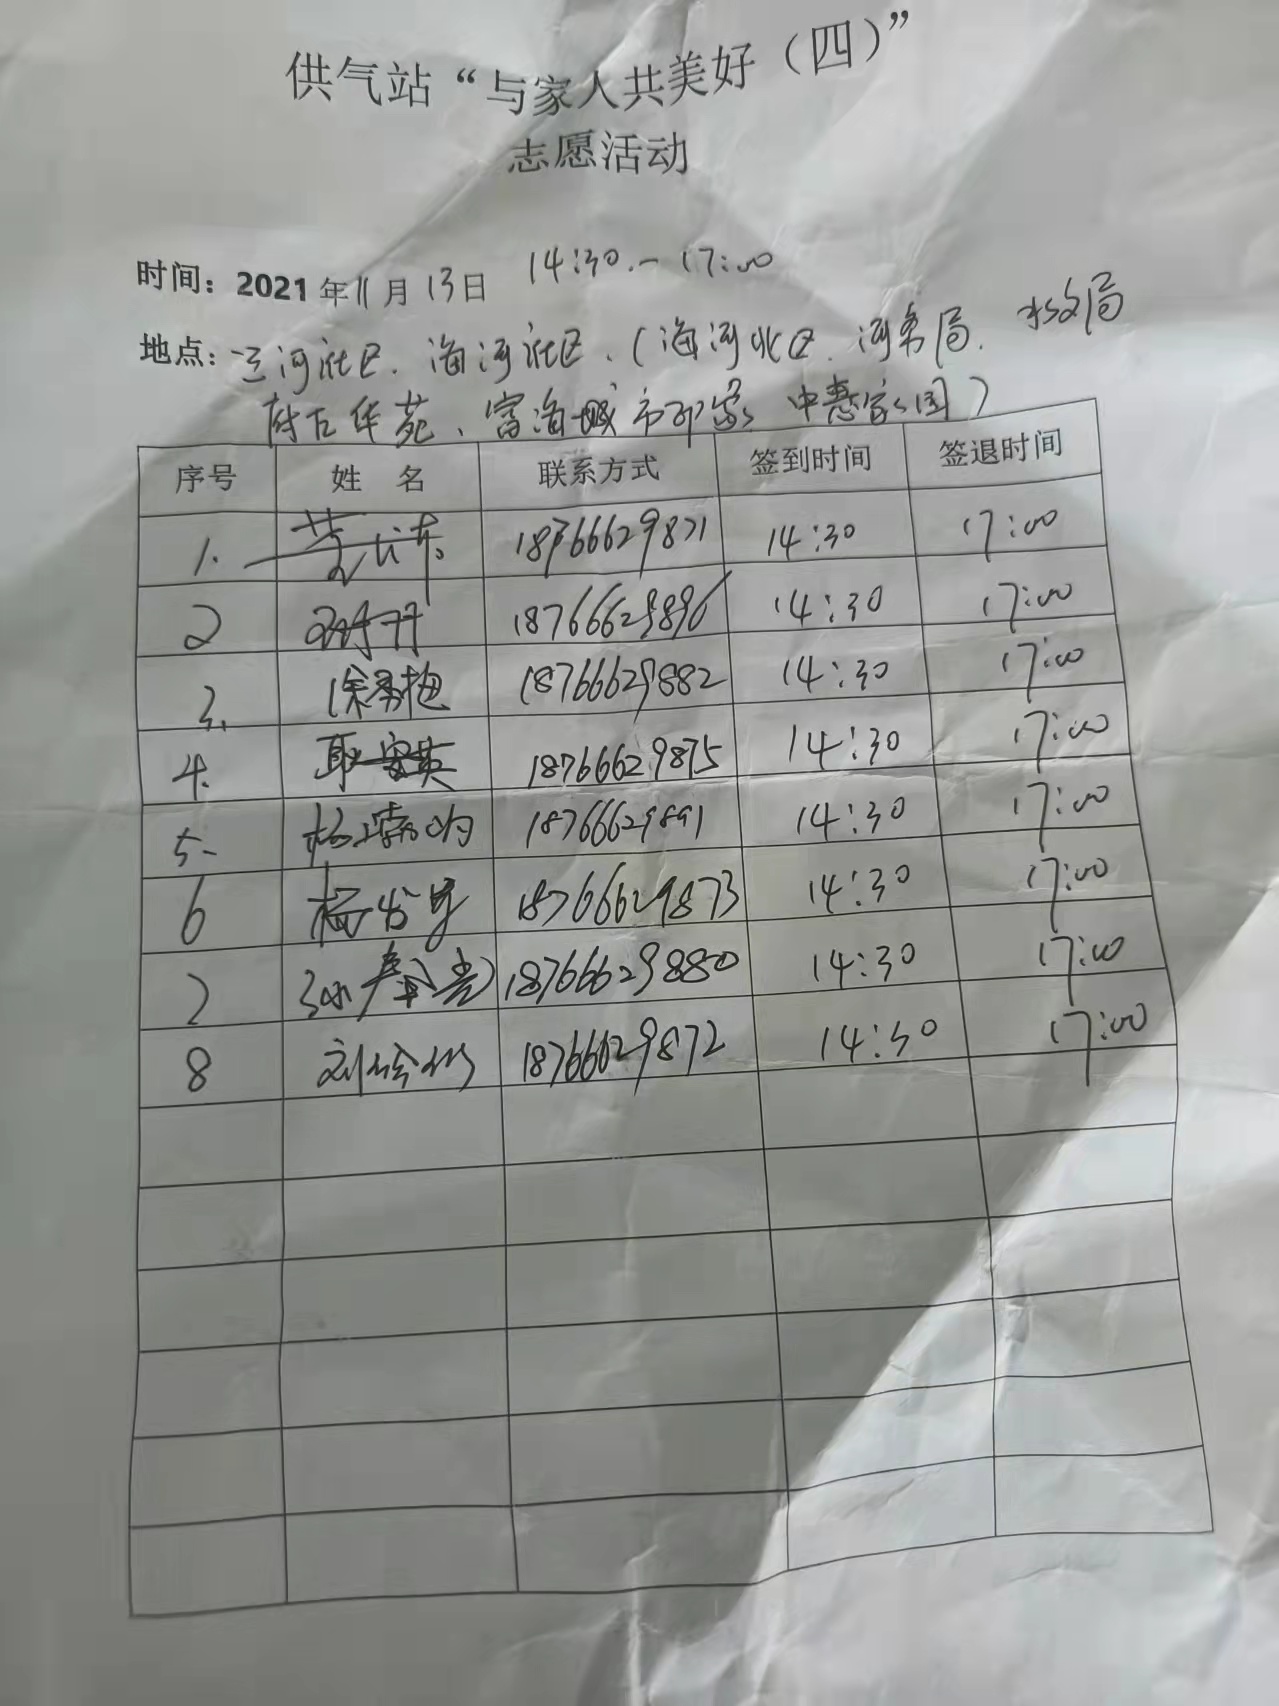 供气站“与家人共美好（四）”
志愿活动
时间：2021年11月13日 14:30.—17:00
地点：三河社区、海河社区、（海河北区、河务局、水文局
府左华苑、富海城市邻家 中惠家园）
序号 姓 名 联系方式 签到时间 签退时间
1. 18766629821 14:30 17:00
2 18766629896 14:30 17:00
3. 徐秀艳 18766629882 14:30 17:00
4. 耿安英 18766629875 14:30 17:00
5. 杨 18766629891 14:30 17:00
6 杨 18766629873 14:30 17:00
7 孙 18766629880 14:30 17:00
8 刘 18766629872 14:30 17:00